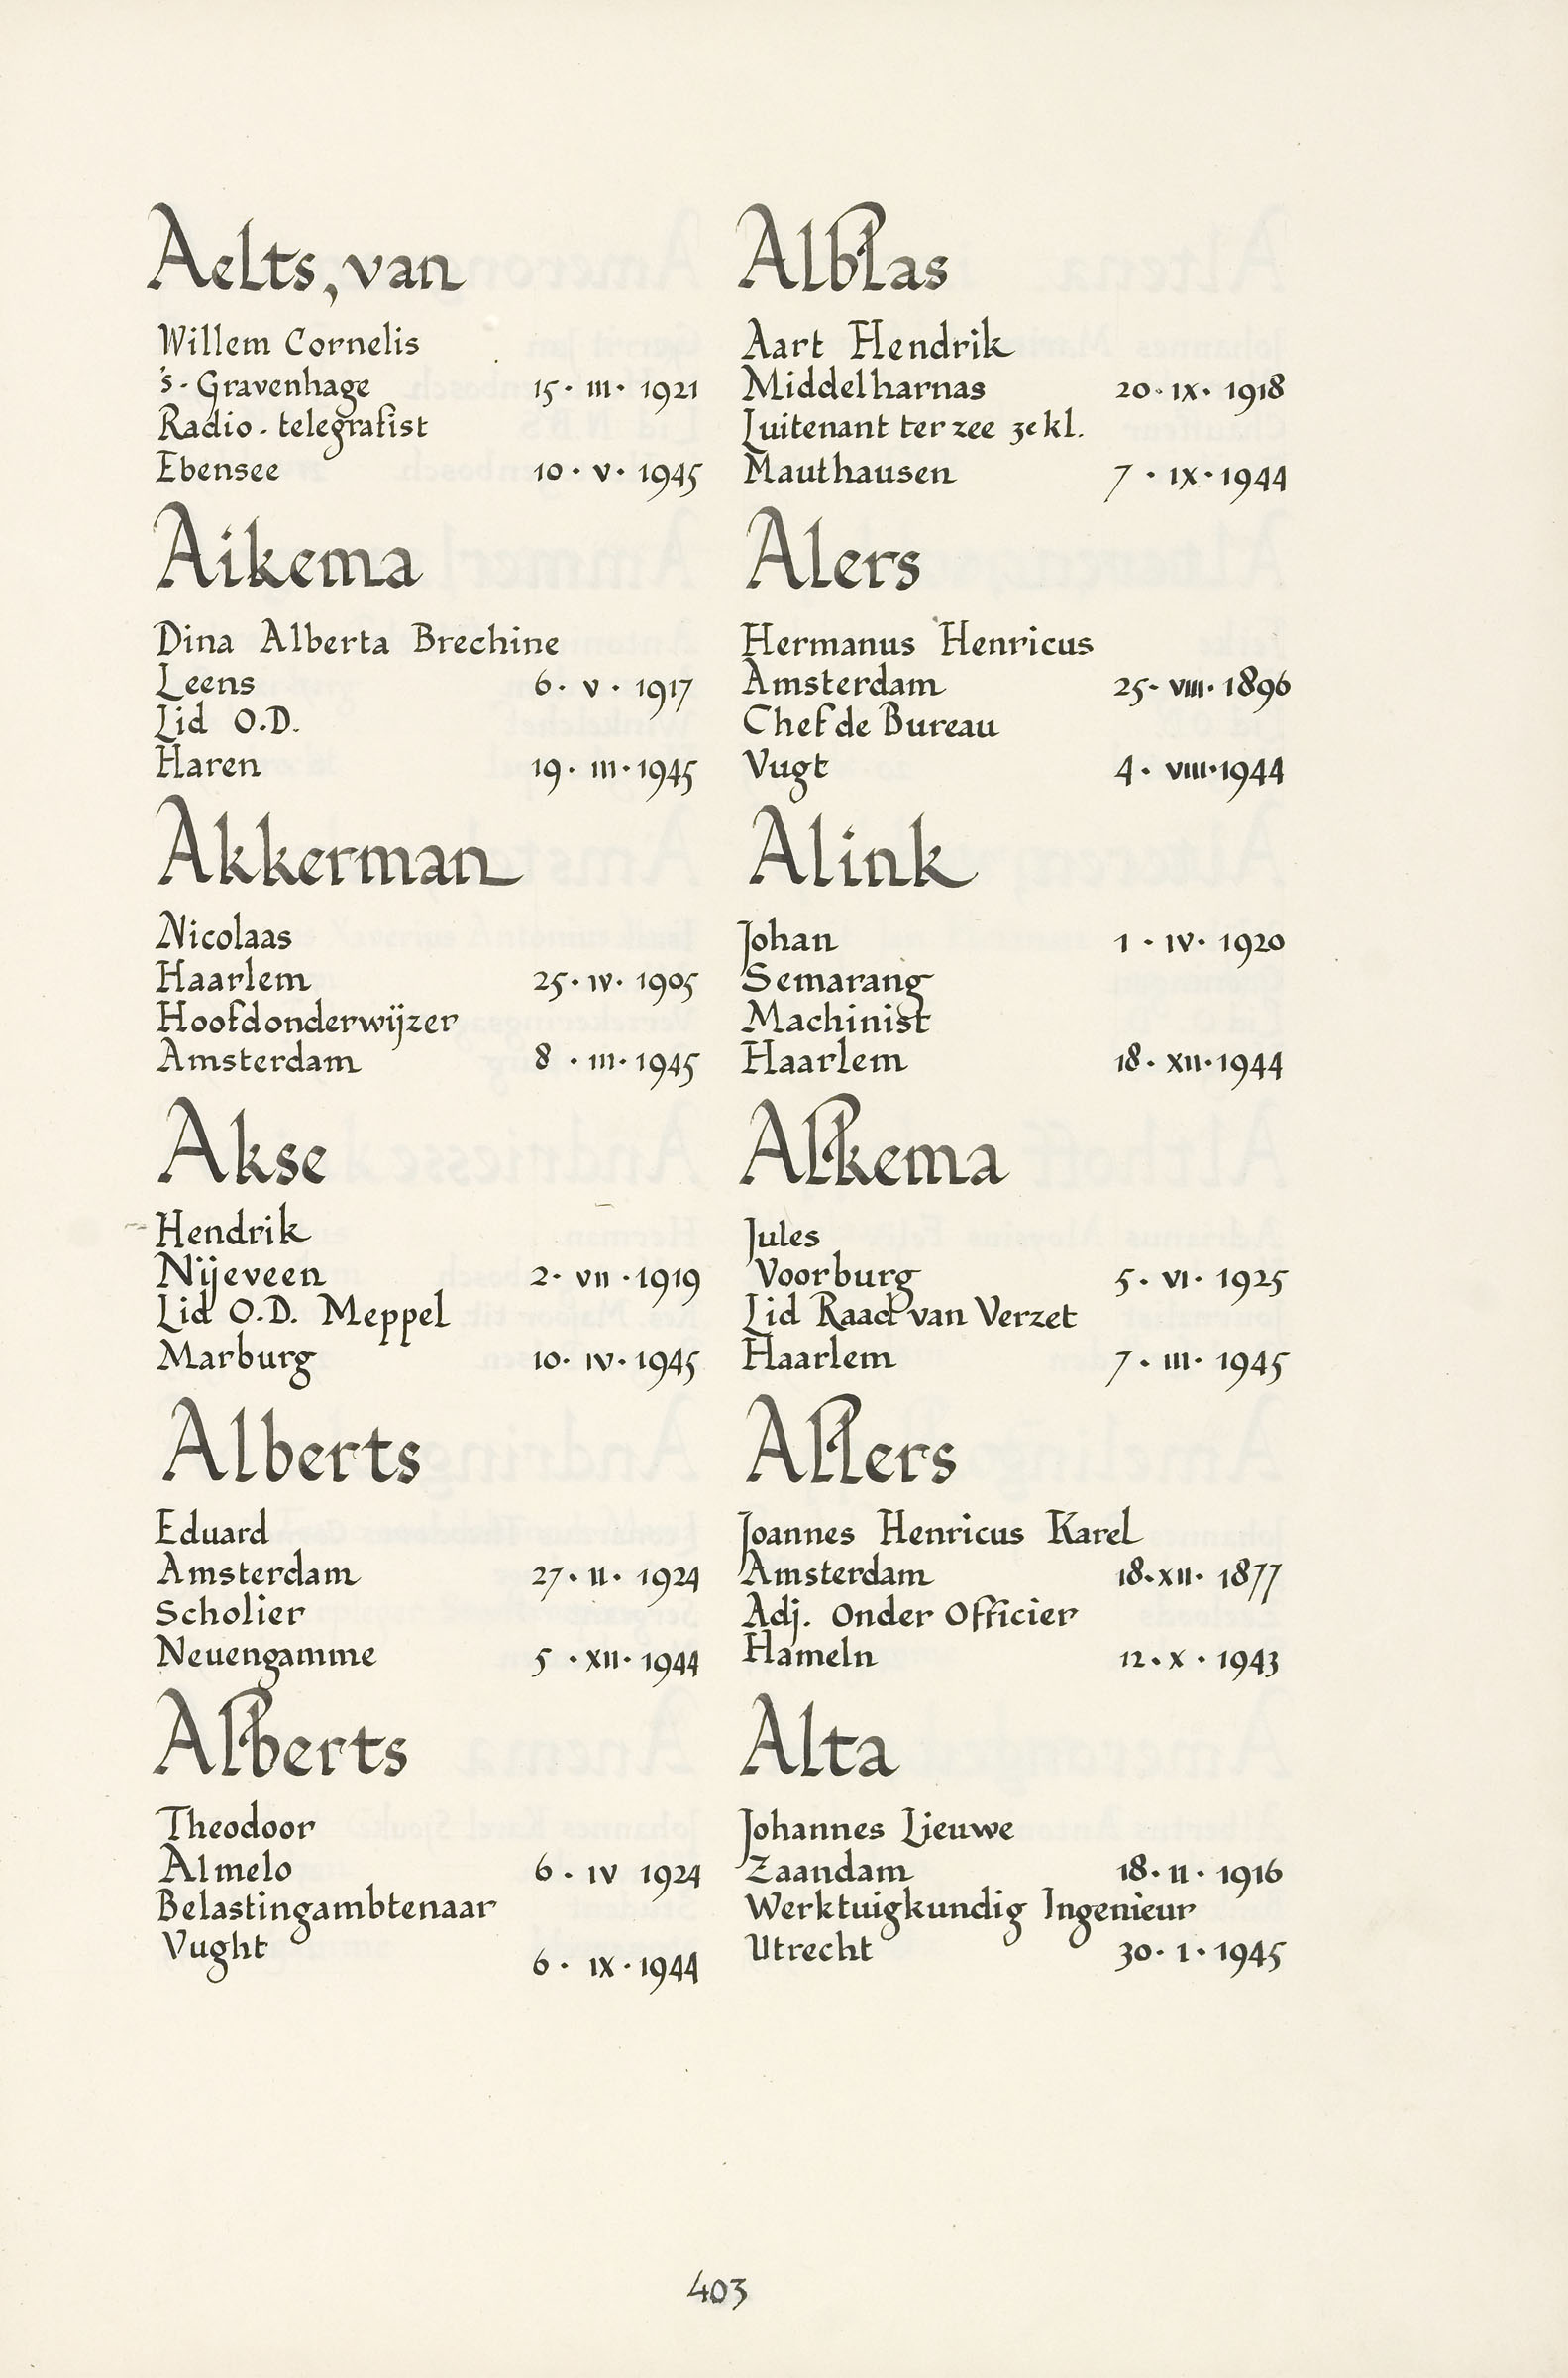 Aelts, van
Willem Cornelis
's-Gravenhage 15·III·1921
Radio-telegrafist
Ebensee 10·V·1945
Aikema
Dina Alberta Brechine
Leens 6·V·1917
Lid O.D.
Haren 19·III·1945
Akkerman
Nicolaas
Haarlem 25·IV·1905
Hoofdonderwijzer
Amsterdam 8·III·1945
Akse
Hendrik
Nijeveen 2·VII·1919
Lid O.D. Meppel
Marburg 10·IV·1945
Alberts
Eduard
Amsterdam 27·II·1924
Scholier
Neuengamme 5·XII·1944
Alberts
Theodoor
Almelo 6·IV 1924
Belastingambtenaar
Vught 6·IX·1944
Alblas
Aart Hendrik
Middelharnas 20·IX·1918
Luitenant ter zee 3e kl.
Mauthausen 7·IX·1944
Alers
Hermanus Henricus
Amsterdam 25·VIII·1896
Chef de Bureau
Vugt 4·VIII·1944
Alink
Johan 1·IV·1920
Semarang
Machinist
Haarlem 18·XII·1944
Alkema
Jules
Voorburg 5·VI·1925
Lid Raad van Verzet
Haarlem 7·III·1945
Allers
Joannes Henricus Karel
Amsterdam 18·XII·1877
Adj. Onder Officier
Hameln 12·X·1943
Alta
Johannes Lieuwe
Zaandam 18·II·1916
Werktuigkundig Ingenieur
Utrecht 30·I·1945
403